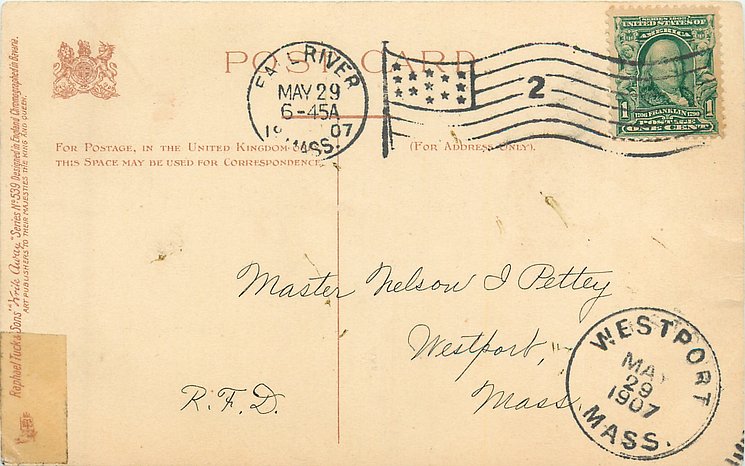 POST CARD
FALL RIVER
MAY 29
6-45A
1907
MASS.
2
SERIES 1902
UNITED STATES OF
AMERICA
1706 FRANKLIN 1790
1 POSTAGE 1
ONE CENT
FOR POSTAGE, IN THE UNITED KINGDOM
THIS SPACE MAY BE USED FOR CORRESPONDENCE.
(FOR ADDRESS ONLY).
Raphael Tuck & Sons' "Write Away" Series No 539. Designed in England Chromographed in Bavaria.
ART PUBLISHERS TO THEIR MAJESTIES THE KING AND QUEEN.
Master Nelson I Pettey
Westport,
Mass.
R.F.D.
WESTPORT
MAY
29
1907
MASS.